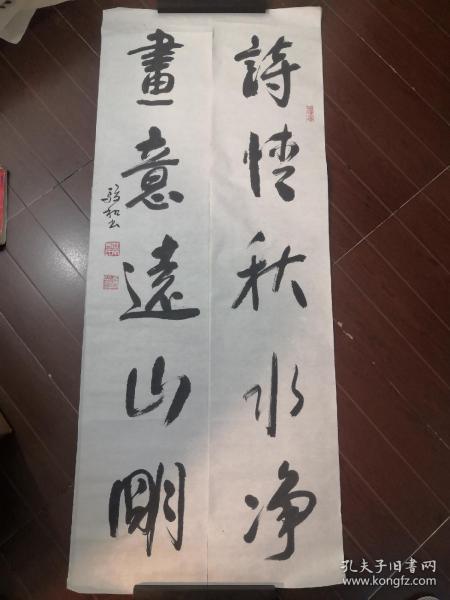 詩情秋水净
畫意遠山明
孔夫子旧书网
www.kongfz.com